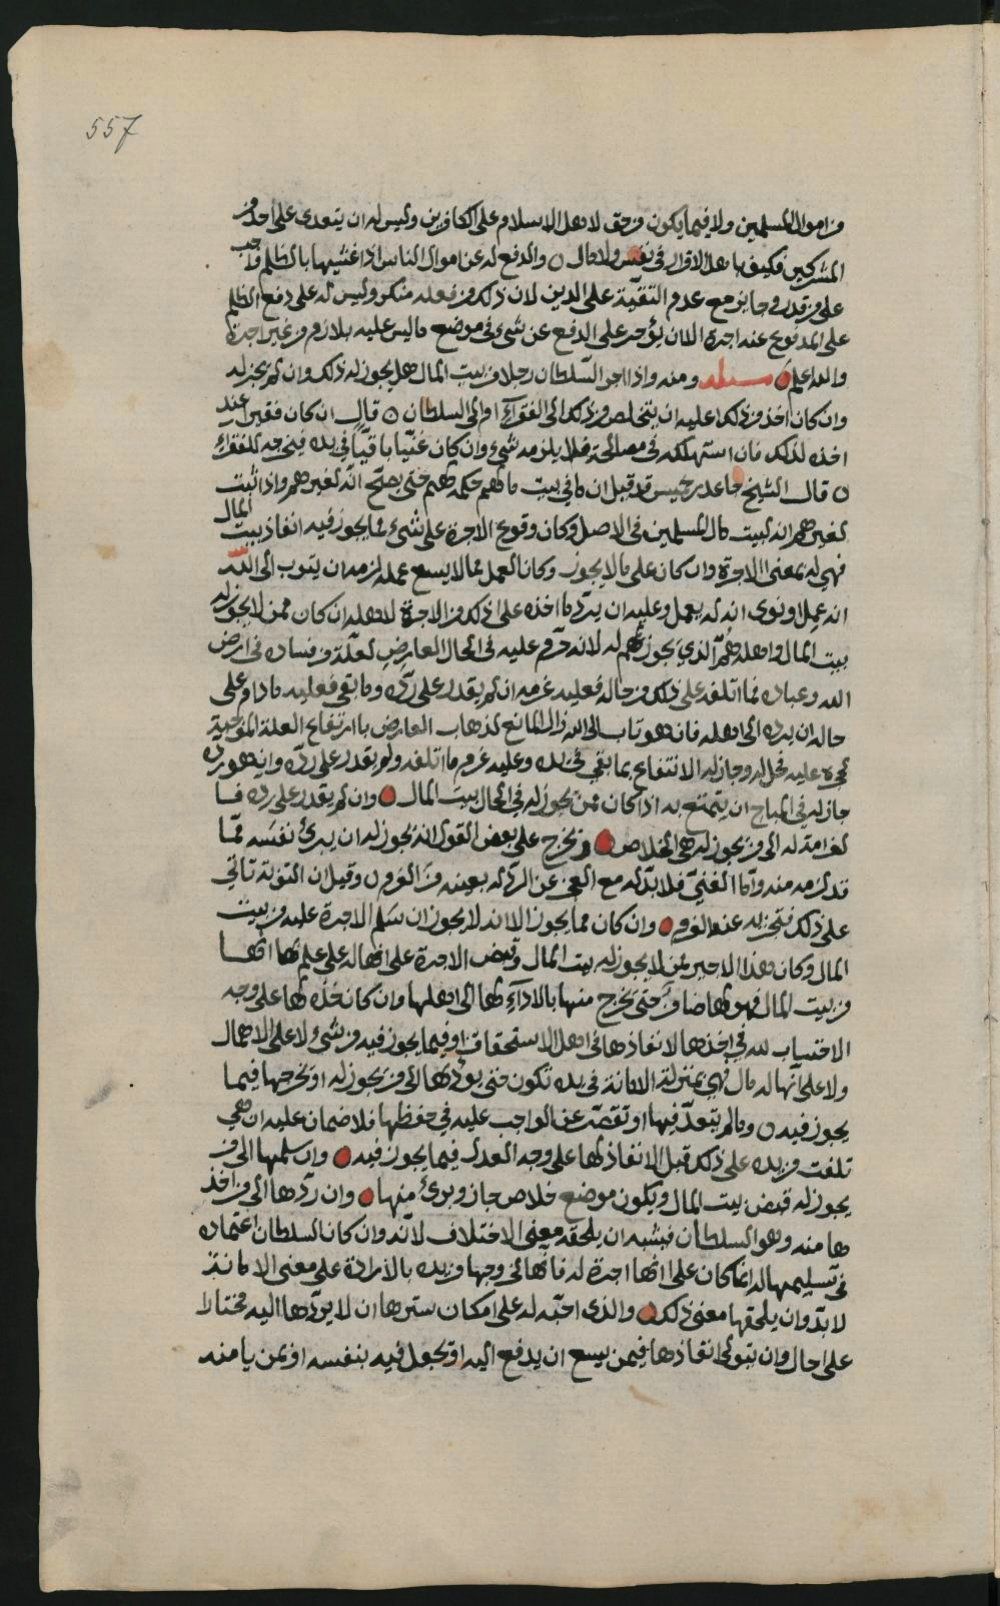 557
من اموال المسلمين ولا فيما يكون من حق لاهل الاسلام وعلى الكافرين وليس له ان يتعدى على احد من
المشركين فكيف باهل الاقرار في نفس ولا مال ○ والدفع له عن اموال الناس اذا غشيها بالظلم واجب
على من قدر وجائز مع عدم التقيّة على الدين لان ذلك من فعله منكر وليس له على دفع الظلم
على المدفوع عنه اجرة الا ان يؤجر على الدفع عن شئ في موضع ما ليس عليه بلازم من غير اجرة
والله اعلم مسئلة ومنه واذا اجر السّلطان رجلا من بيت المال هل يجوز له ذلك وان لم يجز له
وان كان اخذ من ذلك اعليه ان يتخلص من ذلك الى الفقرآء او الى السلطان ○ قال ان كان فقيرا عند
اخذه لذلك فان استهلكه في مصالحه فلا يلزمه شئ وان كان غنيّا باقيا في يده فيخرجه للفقراء
○ قال الشيخ جاعد بن خميس قد قيل ان ما في بيت مالهم حكمه لهم حتى يصحّ انّه لغيرهم واذا ثبت
لغيرهم انه لبيت مال المسلمين في الاصل وكان وقوع الاجرة على شئ مما يجوز فيه انفاذ بيت المال
فهي له بمعنى الاجرة وان كان على ما لا يجوز وكان العمل مما لا يسع عمله لزمه ان يتوب الى الله
انه عمل او نوى انه له يعمل وعليه ان يردّ ما اخذه على ذلك من الاجرة لاهله ان كان ممن لا يجوز له
بيت المال واهله هم الذي يجوز لهم له لانه حرم عليه في الحال العارض لعلّة من فساده في ارض
الله وعباده فما اتلفه على ذلك من حاله فعليه غرمه ان لم يقدر على ردّه وما بقي فعليه ما دام على
حاله ان يرده الى اهله فان هو تاب الى الله زال المانع لذهاب العارض بارتفاع العلة الموجبة
لحجره عليه فحل له وجاز له الانتفاع بما بقي في يده وعليه غرم ما اتلفه ولم يقدر على ردّه وان هو برده
جاز له في المباح ان يتمتع به اذا كان ممن يجوز له في الحال بيت المال وان لم يقدر على رده فا
لغرامة له الى من يجوز له هي الخلاص ويخرج على بعض القول انه يجوز له ان يبرئ نفسه ممّا
قد لزمه منه وامّا الغنيّ فلا بدّ له مع العجز عن الردّ له بعينه من الغرم ○ وقيل ان التوبة تأتي
على ذلك فتجزيه عن الغرم وان كان مما يجوز الا انه لا يجوز ان يسلم الاجرة عليه من بيت
المال وكان هذا الاجير ممن لا يجوز له بيت المال وقبض الاجرة على انها له على علم بها انها
من بيت المال فهو لها ضامن حتى يخرج منها بالادآء لها الى اهلها وان كان اخذه لها على وجه
الاحتساب لله في اخذها لانفاذها في اهل الاستحقاق او فيما يجوز فيه من شئ ولا على الاهمال
ولا على انّها له مال فهي بمنزلة الامانة في يده تكون حتى يؤدّيها الى من يجوز له او يخرجها فيما
يجوز فيه ○ وما لم يتعدّ فيها او تقصّر عن الواجب عليه في حفظها فلا ضمان عليه ان هي
تلفت من يده على ذلك قبل الانفاذ لها على وجه العدل فيما يجوز فيه وان سلمها الى من
يجوز له قبض بيت المال ويكون موضع خلاص جاز وبرئ منها وان ردّها الى من اخذ
ها منه وهو السلطان فيشبه ان يلحقه معنى الاختلاف لانّه وان كان السلطان اعتماده
في تسليمها له انما كان على انها اجرة له فانها في وجهها من يده بالارادة على معنى الامانة
لا بدّ وان يلحقها معنى ذلك والذي احبّه له على امكان سترها ان لا يردّها اليه مختارا
على حال وان يتولى انفاذها فيمن يسع ان يدفع اليه او يجعل فيه بنفسه او بمن يامنه